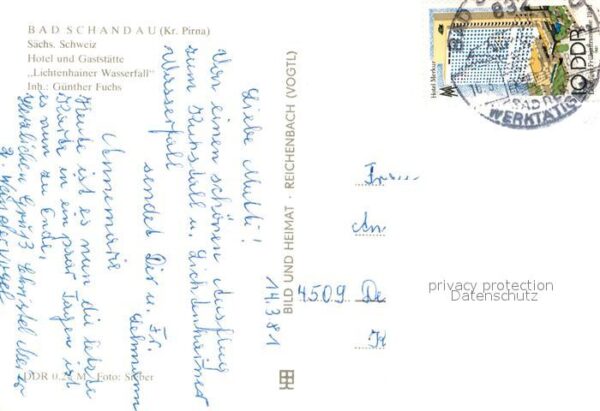 BAD SCHANDAU (Kr. Pirna)
Sächs. Schweiz
Hotel und Gaststätte
„Lichtenhainer Wasserfall"
Inh.: Günther Fuchs
Liebe Mutti!
Von einen schönen Ausflug
zum Kuhstall u. Lichtenhainer
Wasserfall
sendet Dir u. Fr.
Lehmann
Annemarie
Heute ist es nun die letzte
Karte in ein paar Tagen ist
es nun zu Ende.
Herzlichen Gruß Christel
14.3.81
BILD UND HEIMAT · REICHENBACH (VOGTL)
DDR M Foto:
Hotel Merkur
10 DDR
BAD
WERKTÄTIG
4509 De
privacy protection
Datenschutz